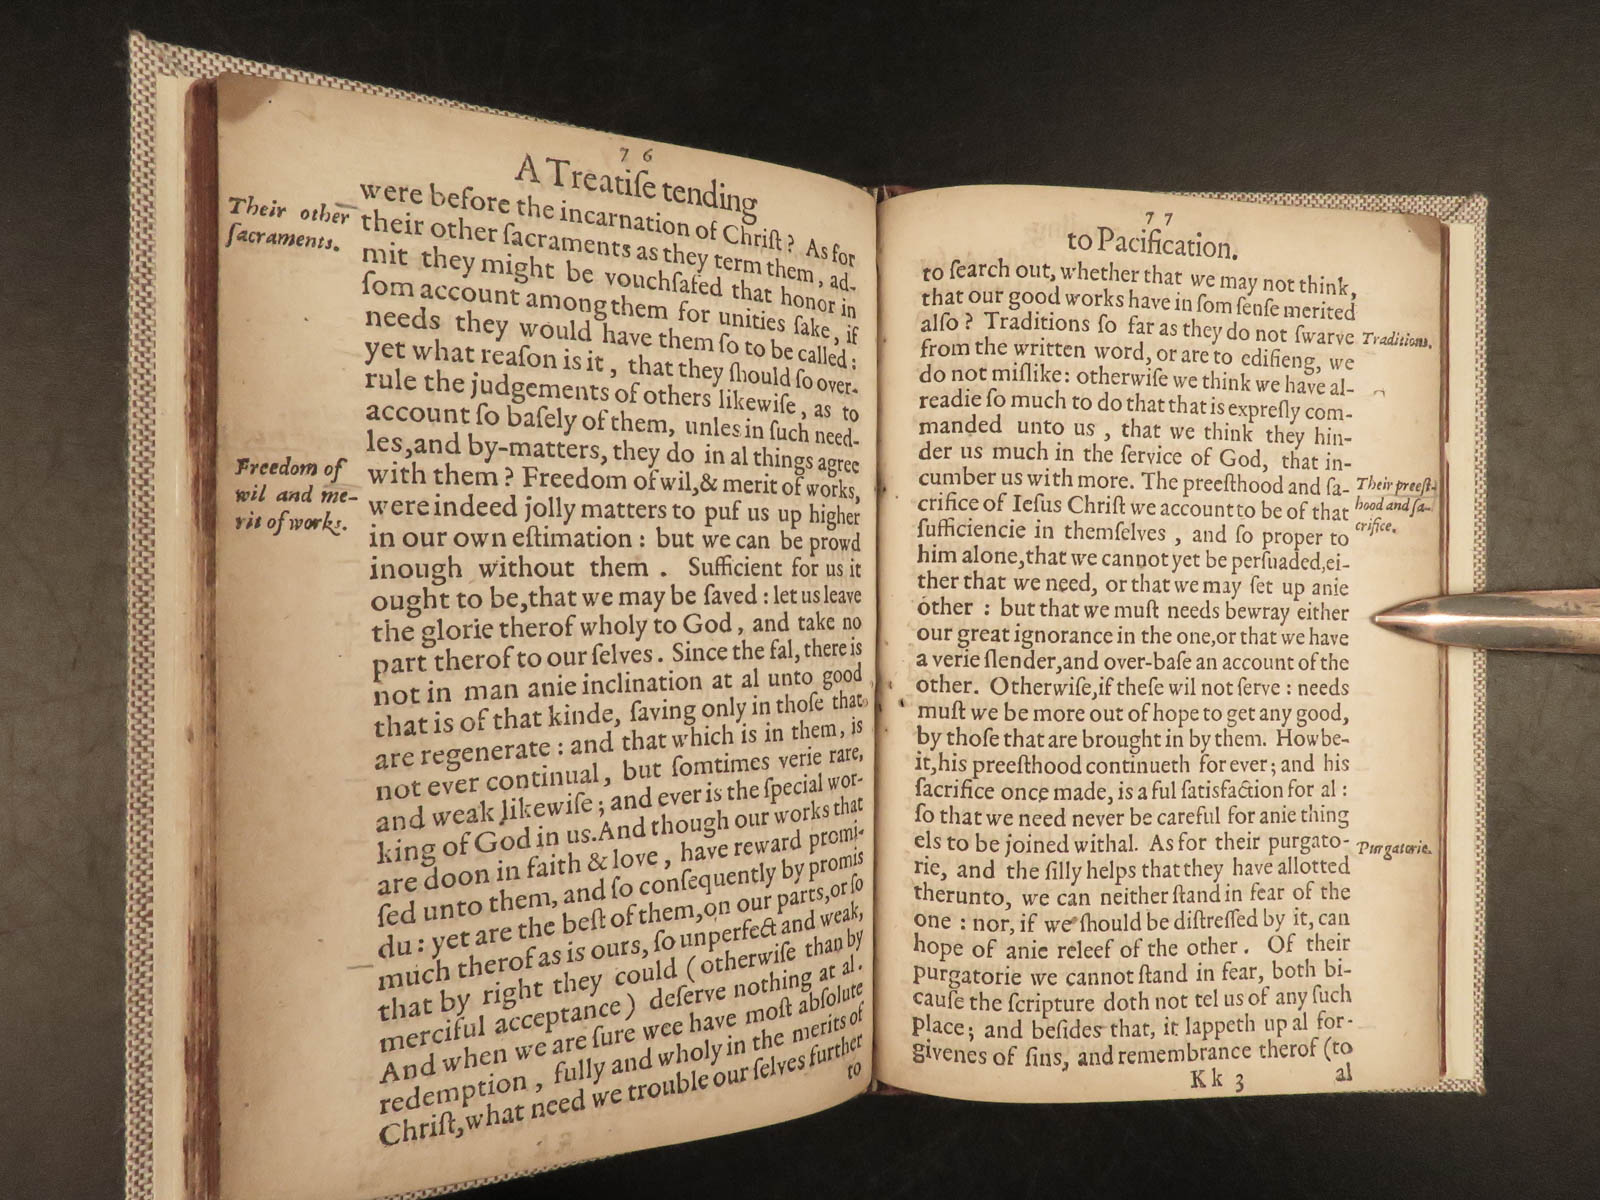 76
A Treatiſe tending
were before the incarnation of Chriſt? As for
Their other
ſacraments.
their other ſacraments as they term them, ad-
mit they might be vouchſafed that honor in
ſom account among them for unities ſake, if
needs they would have them ſo to be called:
yet what reaſon is it, that they ſhould ſo over-
rule the judgements of others likewiſe, as to
account ſo baſely of them, unles in ſuch need-
les,and by-matters, they do in al things agree
Freedom of
wil and me-
rit of works.
with them? Freedom of wil,& merit of works,
were indeed jolly matters to puf us up higher
in our own eſtimation: but we can be prowd
inough without them. Sufficient for us it
ought to be,that we may be ſaved: let us leave
the glorie therof wholy to God, and take no
part therof to our ſelves. Since the fal, there is
not in man anie inclination at al unto good
that is of that kinde, ſaving only in thoſe that
are regenerate: and that which is in them, is
not ever continual, but ſomtimes verie rare,
and weak likewiſe; and ever is the ſpecial wor-
king of God in us.And though our works that
are doon in faith & love, have reward promi-
ſed unto them, and ſo conſequently by promis
du: yet are the beſt of them,on our parts,or ſo
much therof as is ours, ſo unperfect and weak,
that by right they could (otherwiſe than by
merciful acceptance) deſerve nothing at al.
And when we are ſure wee have moſt abſolute
redemption, fully and wholy in the merits of
Chriſt,what need we trouble our ſelves further
to
77
to Pacification.
to ſearch out, whether that we may not think,
that our good works have in ſom ſenſe merited
alſo? Traditions ſo far as they do not ſwarve
Traditions.
from the written word, or are to edifieng, we
do not miſlike: otherwiſe we think we have al-
readie ſo much to do that that is expreſly com-
manded unto us, that we think they hin-
der us much in the ſervice of God, that in-
cumber us with more. The preeſthood and ſa-
Their preeſt-
hood and ſa-
crifice.
crifice of Ieſus Chriſt we account to be of that
ſufficiencie in themſelves, and ſo proper to
him alone,that we cannot yet be perſuaded,ei-
ther that we need, or that we may ſet up anie
other: but that we muſt needs bewray either
our great ignorance in the one,or that we have
a verie ſlender,and over-baſe an account of the
other. Otherwiſe,if theſe wil not ſerve: needs
muſt we be more out of hope to get any good,
by thoſe that are brought in by them. Howbe-
it,his preeſthood continueth for ever; and his
ſacrifice once made, is a ful ſatisfaction for al:
ſo that we need never be careful for anie thing
els to be joined withal. As for their purgato-
Purgatorie.
rie, and the ſilly helps that they have allotted
therunto, we can neither ſtand in fear of the
one: nor, if we ſhould be diſtreſſed by it, can
hope of anie releef of the other. Of their
purgatorie we cannot ſtand in fear, both bi-
cauſe the ſcripture doth not tel us of any ſuch
place; and beſides that, it lappeth up al for-
givenes of ſins, and remembrance therof (to
Kk 3
al